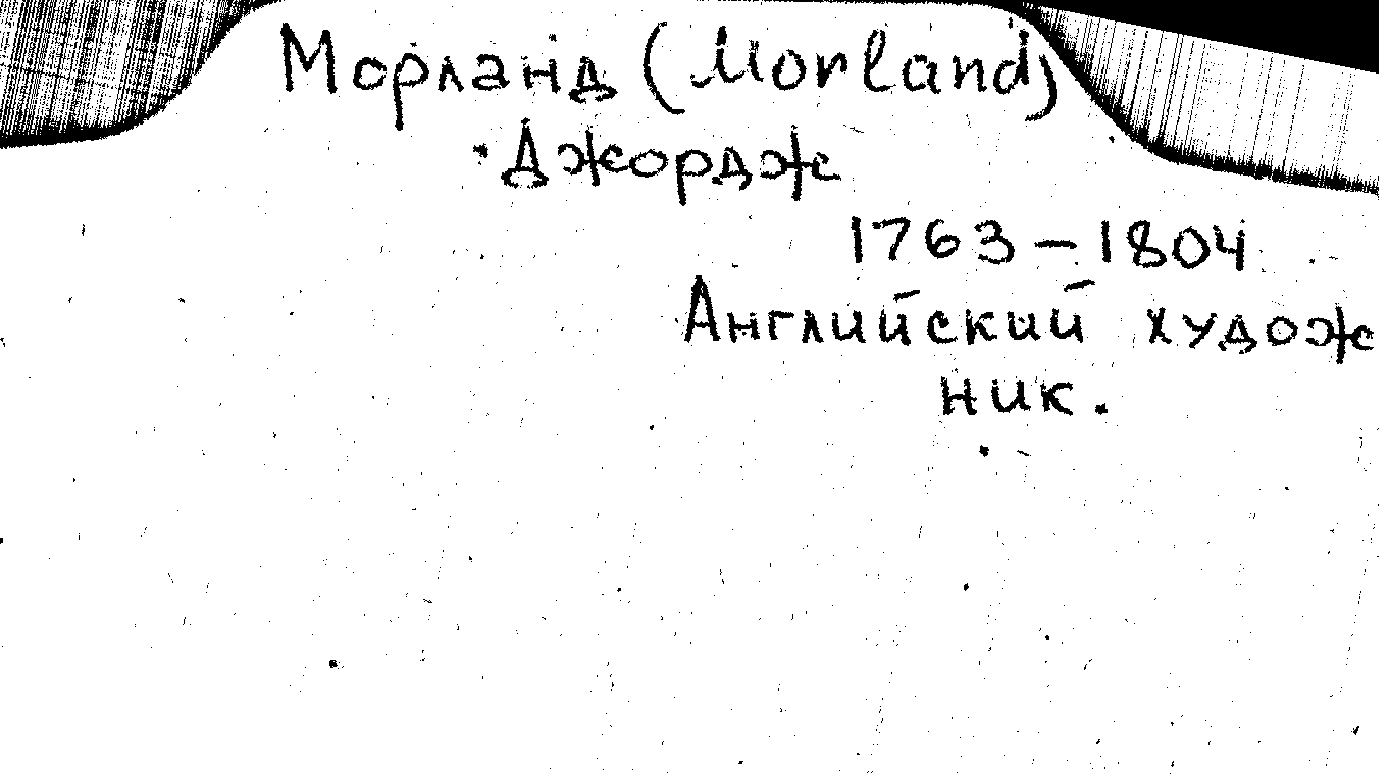 Морланд (Morland)
Джордж
1763 – 1804
Английский худож
ник.